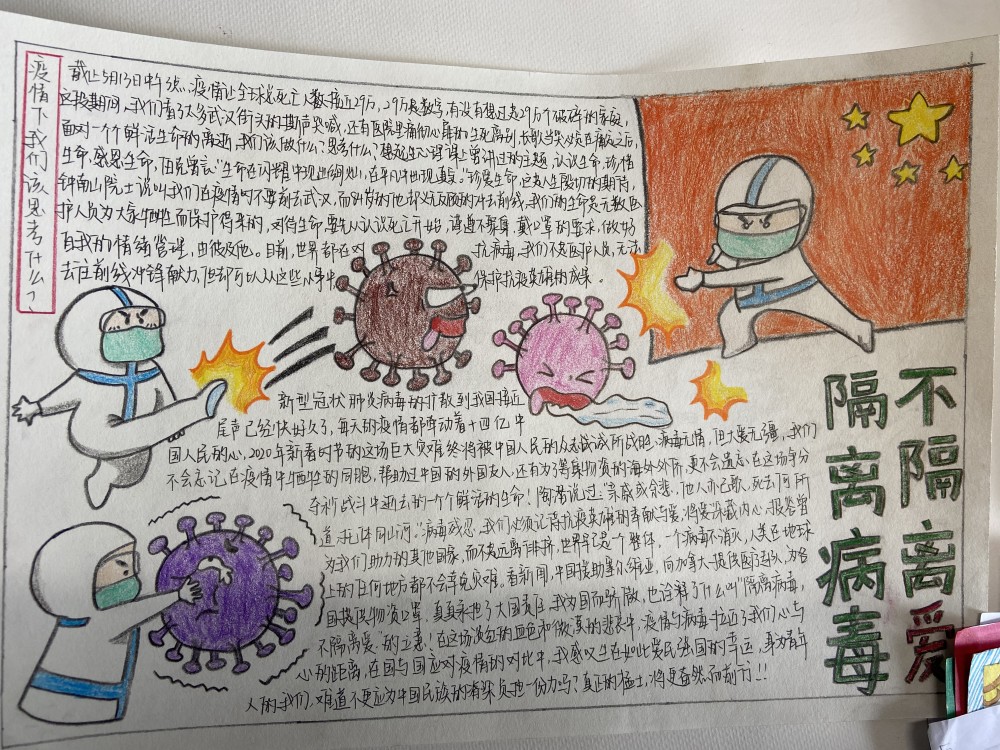 疫情下我们该思考什么?
截止5月13日中午12点,疫情让全球总死亡人数接近29万,29万是数字,有没有想过是29万个破碎的家庭,
这段期间,我们看了太多武汉街头的歇声哭喊,还有医院里痛彻心扉的生死离别,长歌当哭必是在痛定之后,
面对一个个鲜活生命的离逝,我们该做什么?思考什么?想起生心理课上曾讲过的主题,认识生命,珍惜
生命,感恩生命,
生命在闪耀中现出绚烂,在平凡中出现真实。"珍爱生命,这是人生殷切的期待,
钟南山院士说叫我们在疫情时不要前去武汉,而84岁的他却义无反顾的冲去前线,我们的生命是无数医
护人员为大家牺牲而保护得来的,对待生命,要先从认识死亡开始,谨遵不聚集,戴口罩的要求,做好
自我的情绪管理,由彼及他。目前,世界都在对抗病毒,我们不是医护人员,无法
去往前线冲锋献力,但却可以从这些小事中保持抗疫英雄的成果。
新型冠状肺炎病毒的扩散到我国接近
尾声已经快好久了,每天的疫情都牵动着十四亿中
国人民的心,2020年新春时节的这场巨大灾难终将被中国人民的众志成城所战胜,病毒无情,但大爱无疆,我们
不会忘记在疫情中牺牲的同胞,帮助过中国的外国友人,还有为了筹集物资的海外外侨,更不会遗忘在这场争分
夺秒战斗中逝去的一个个鲜活的生命!陶潜说过:"亲戚或余悲,他人亦已歌,死去何所
道,托体同山阿。"病毒残忍,我们必须记得抗疫英雄的奉献与爱,将爱深藏内心,报答曾
为我们助力的其他国家,而不是远离、排挤,世界是一个整体,一个病毒不消灭,人类在地球
上的任何地方都不会幸免灾难。看新闻,中国援助塞尔维亚,向加拿大提供医疗队,为各
国提供物资口罩,真真承担了大国责任,我为国而骄傲,也诠释了什么叫"隔离病毒,
不隔离爱"的立意!在这场淡红的血色和微真的悲哀中,疫情与病毒拉近了我们心与
心的距离,在国与国应对疫情的对比中,我感叹生在如此爱民强国的幸运,身为青年
人的我们,难道不更应为中国民族的
担一份力吗?真正的猛士,将更奋然而前行!!
隔离病毒
不隔离爱